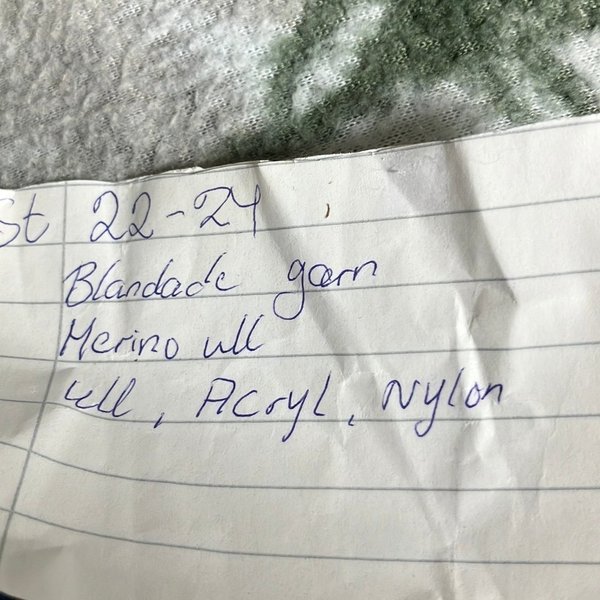 St 22-24
Blandade garn
Merino ull
ull, Acryl, Nylon